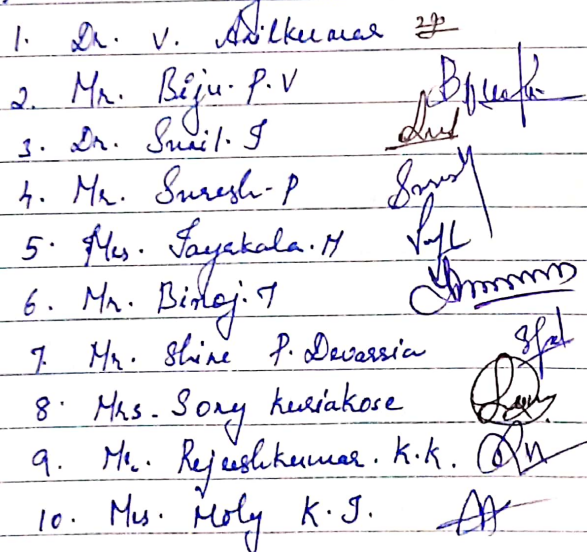 1. Dr. V. Anilkumar
2. Mr. Biju. P. V
3. Dr. Sunil. J
4. Mr. Suresh-P
5. Mrs. Jayakala. M
6. Mr. Binoj. J
7. Mr. Shine P. Devassia
8. Mrs. Sony Kuriakose
9. Mr. Rejeeshkumar. K.K.
10. Mrs. Moly K. J.